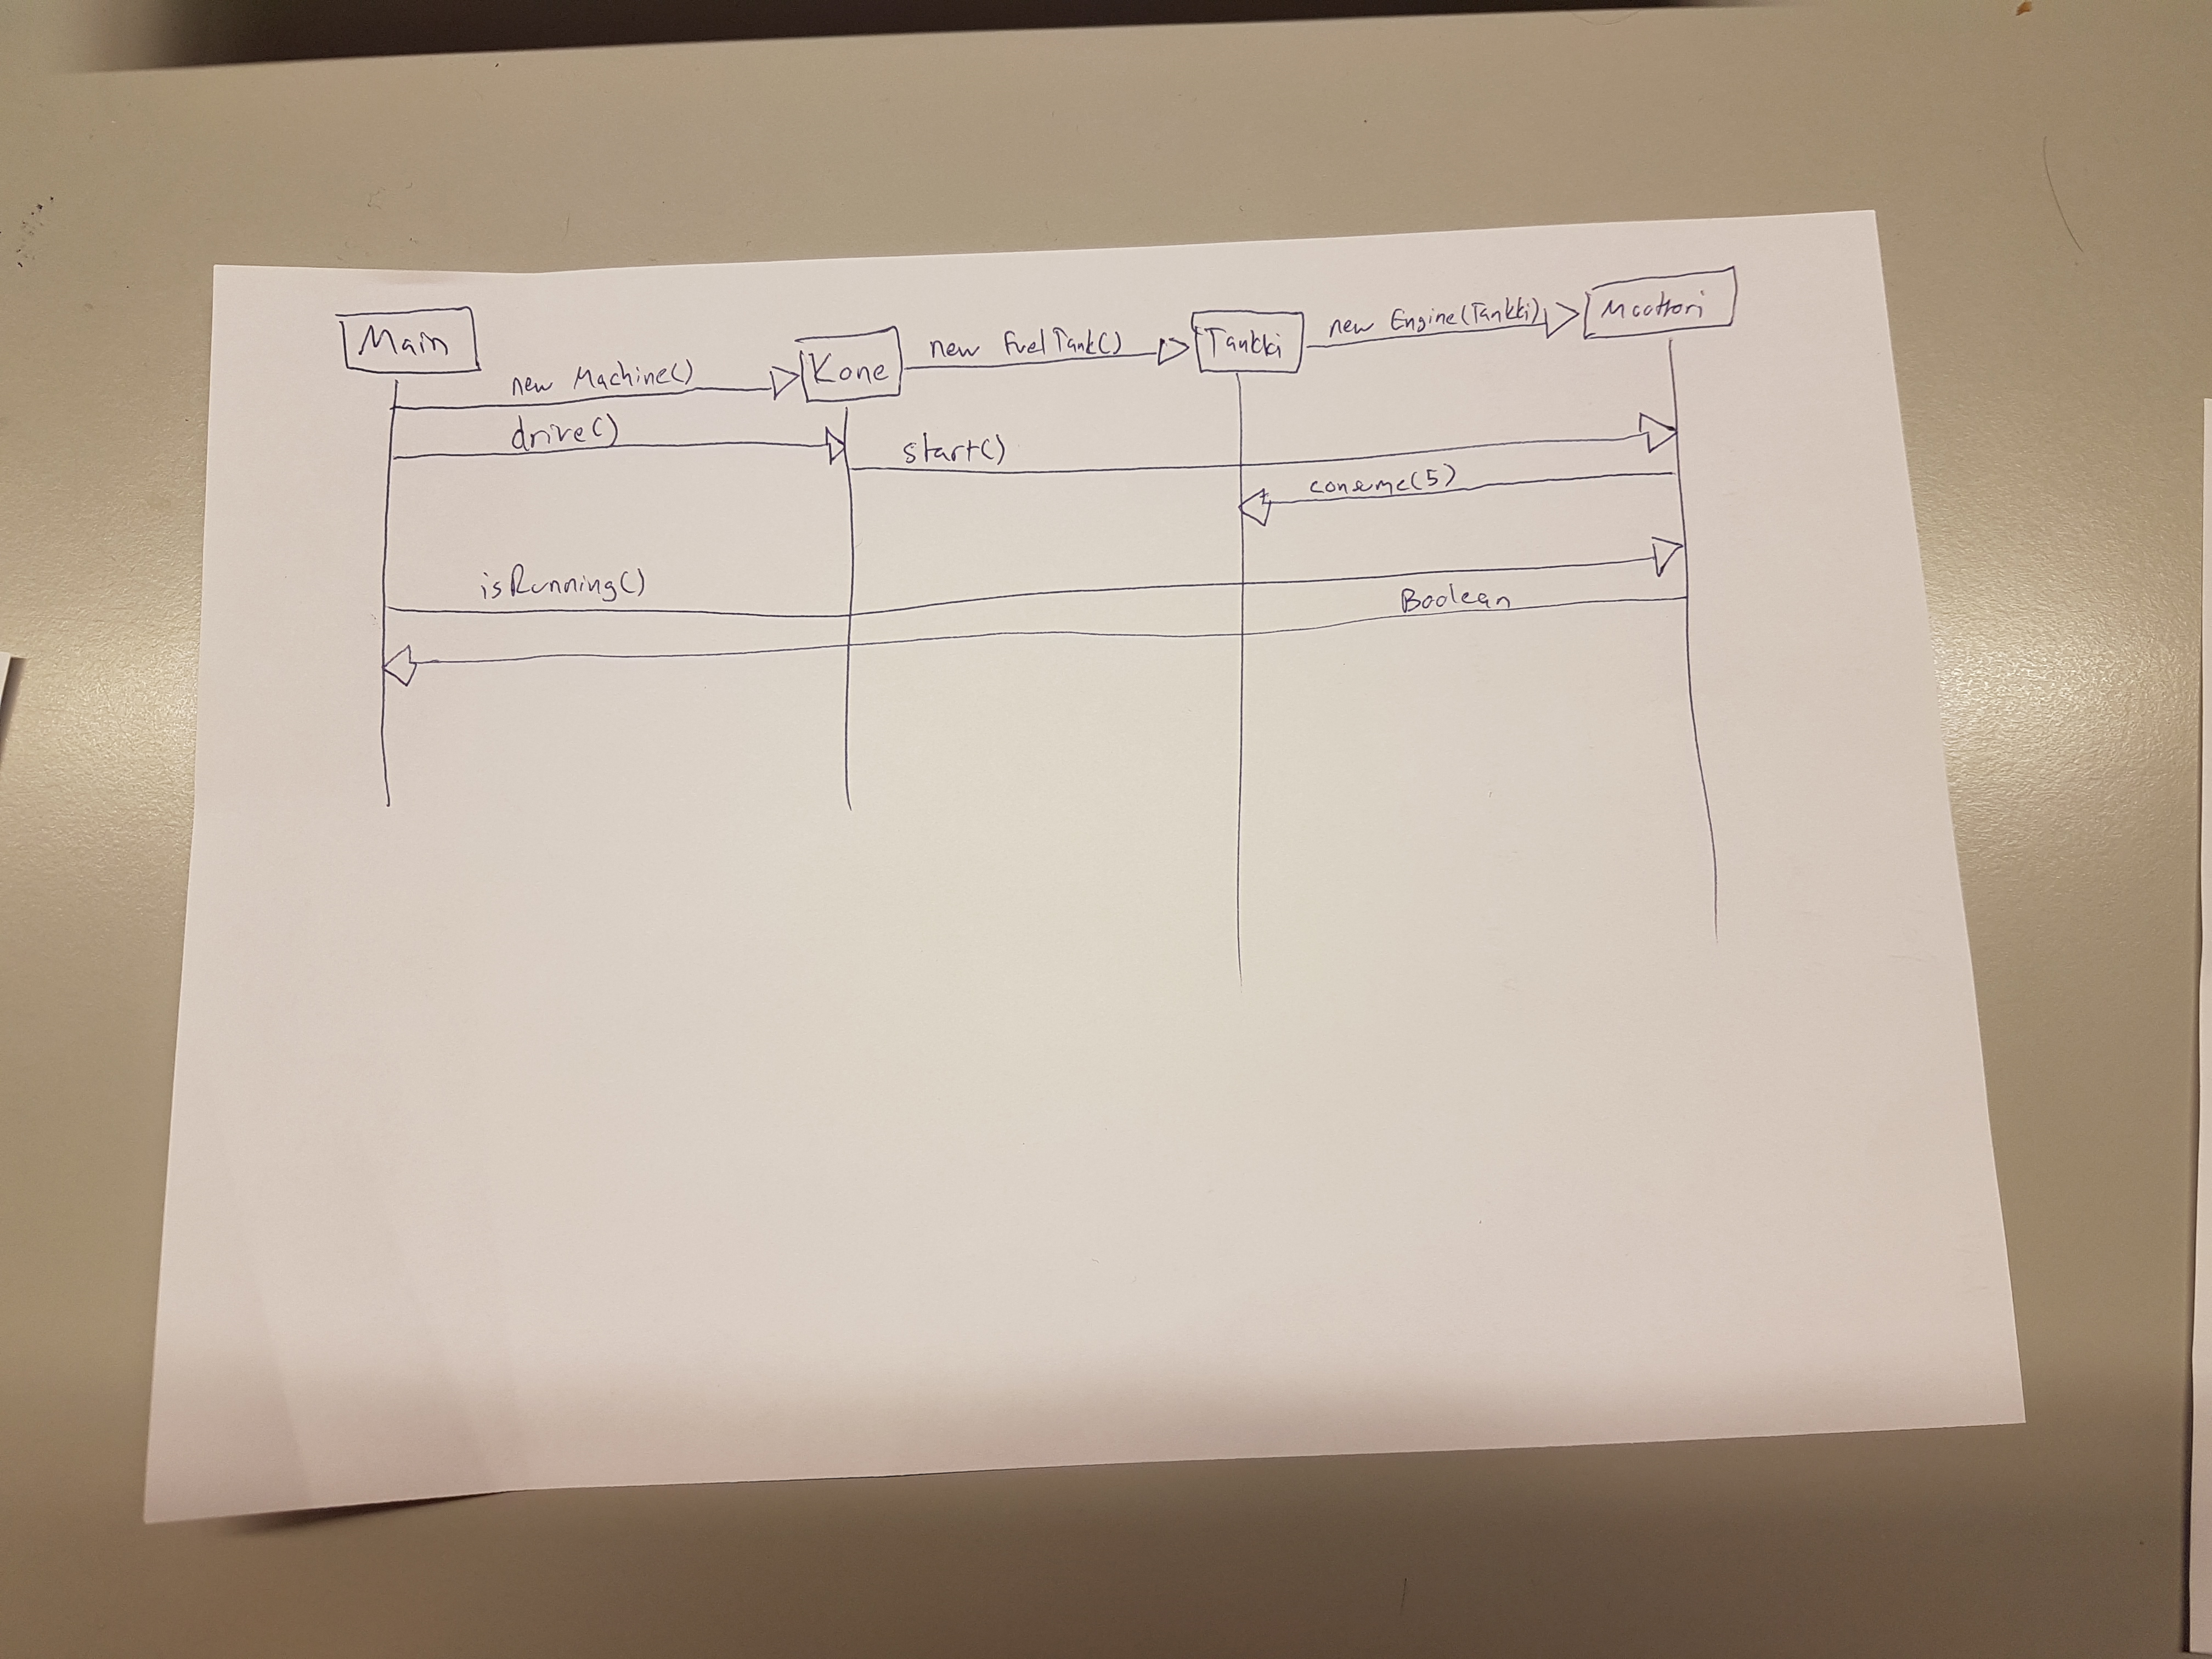 Main
new Machine()
Kone
new FuelTank()
Tankki
new Engine(Tankki)
Moottori
drive()
start()
consume(5)
isRunning()
Boolean